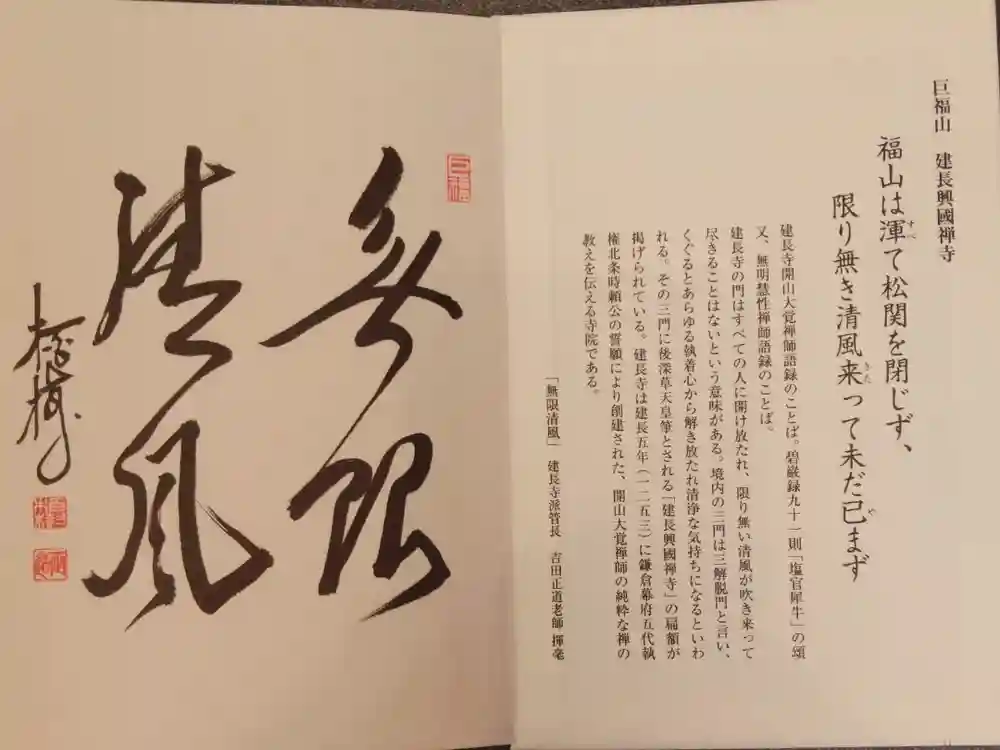 巨福山 建長興國禅寺
福山は渾て松関を閉じず、
限り無き清風来って未だ已まず
建長寺開山大覚禅師語録のことば。碧巌録九十一則「塩官犀牛」の頌
又、無明慧性禅師語録のことば。
建長寺の門はすべての人に開け放たれ、限り無い清風が吹き来って
尽きることはないという意味がある。境内の三門は三解脱門と言い、
くぐるとあらゆる執着心から解き放たれ清浄な気持ちになるといわ
れる。その三門に後深草天皇筆とされる「建長興國禅寺」の扁額が
掲げられている。建長寺は建長五年(一二五三)に鎌倉幕府五代執
権北条時頼公の誓願により創建された、開山大覚禅師の純粋な禅の
教えを伝える寺院である。
「無限清風」 建長寺派管長 吉田正道老師 揮毫
巨福
無限
清風